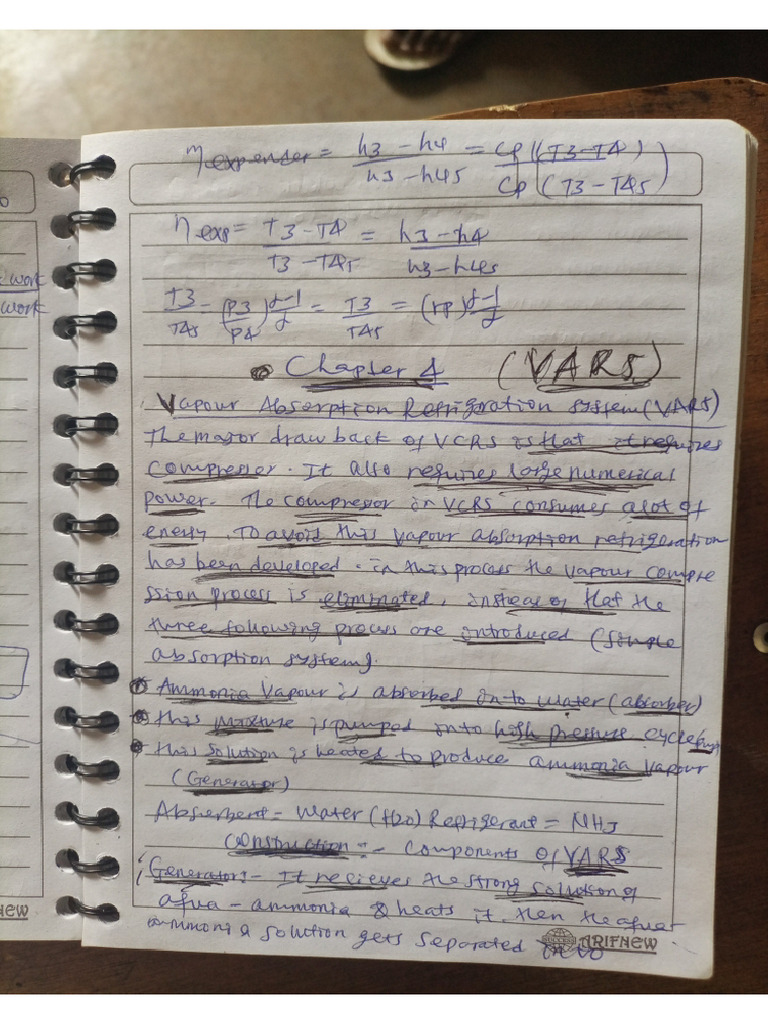 η expender = h3 - h4 / h3 - h4s = Cp (T3 - T4) / Cp (T3 - T4s)
η exp = T3 - T4 / T3 - T4s = h3 - h4 / h3 - h4s
T3 / T4s = (P3 / P4) γ-1 / γ = T3 / T4s = (rp) γ-1 / γ
Chapter 4 (VARS)
Vapour Absorption Refrigration system (VARS)
The major draw back of VCRS is that it requires
Compressor. It also requires large numerical
power. The compressor in VCRS consumes alot of
energy. To avoid this vapour absorption refrigeration
has been developed. in this process the vapour compre
ssion process is eliminated, instead of that the
three following process are introduced (simple
absorption system).
Ammonia vapour is absorbed into water (absorber)
this mixture is pumped into high pressure cycle
this solution is heated to produce ammonia vapour
(Generator)
Absorbent - water (H2O) Refrigerant = NH3
Construction :- Components of VARS
Generator :- It recieves the strong solution of
aqua - ammonia & heats it. then the aqua
ammonia solution gets separated into
ARIFNEW
work
work
NEW